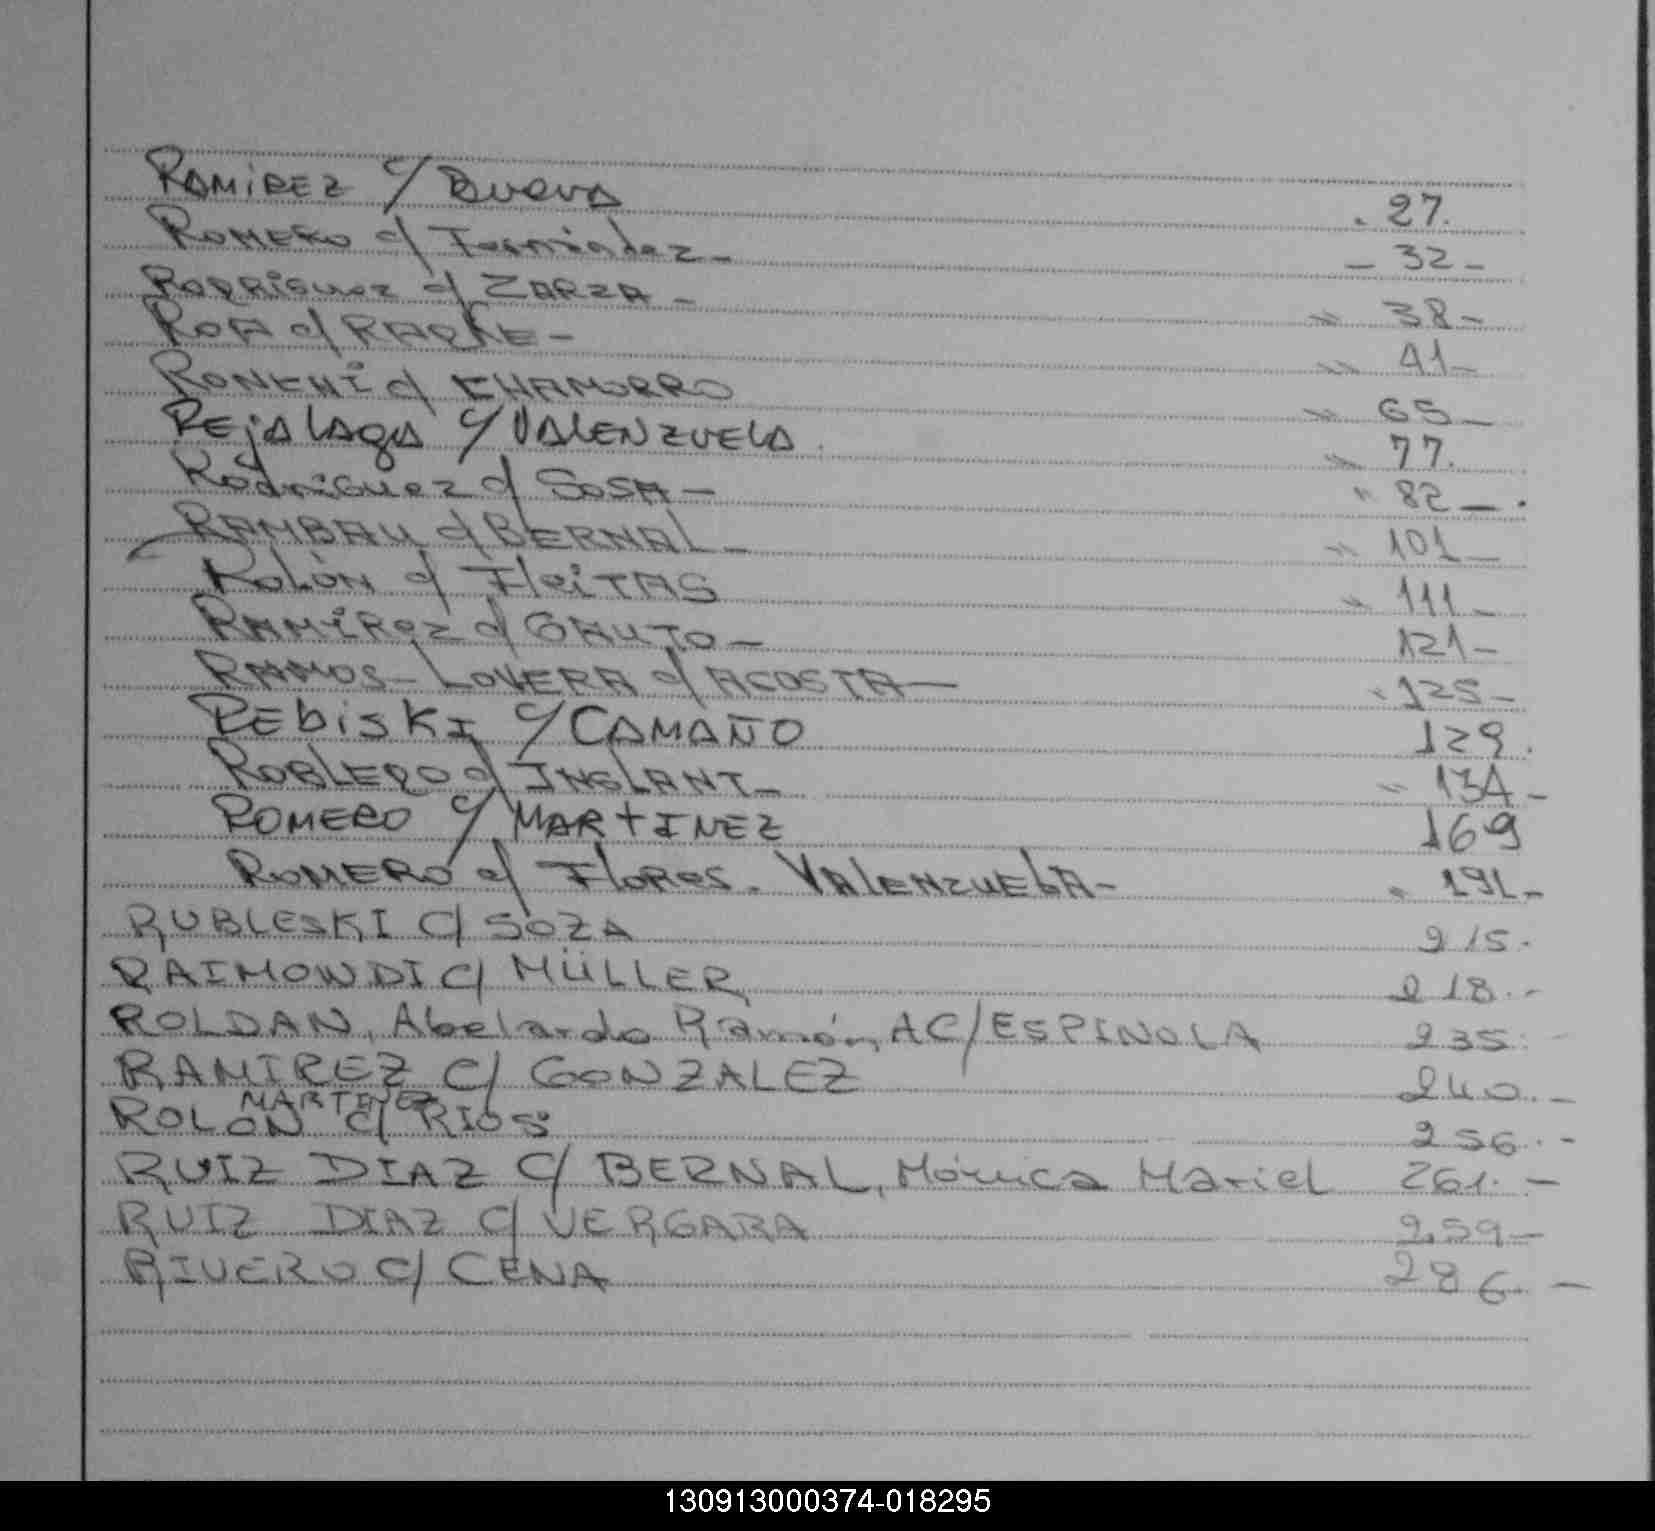 RAMIREZ c/ BUENA . 27.
ROMERO c/ Fernández - - 32 -
RODRIGUEZ c/ ZARZA - " 38 -
ROA c/ - " 41 -
c/ CHAMORRO " 65 -
REJALAGA c/ VALENZUELA . " 77.
Rodriguez c/ SOSA - " 82 - .
RAMBAU c/ BERNAL - " 101 -
ROLÓN c/ FleiTAS " 111 -
RAMÍREZ c/ GAUTO - 121 -
RAMOS - LOVERA c/ ACOSTA - " 125 -
REbiSKI c/ CAMAÑO 129.
ROBLERO c/ INGLANT - " 134 -
ROMERO c/ MARTINEZ 169
ROMERO c/ FLORES - VALENZUELA - " 191 -
RUBLESKI C/ SOZA 215.
RAIMONDI C/ MÜLLER 218. -
ROLDAN, Abelardo Ramón, A C/ ESPINOLA 235.
RAMIREZ C/ GONZALEZ 240. -
MARTINEZ
ROLON C/ RIOS 256. -
RUIZ DIAZ C/ BERNAL, Mónica Mariel 261. -
RUIZ DIAZ C/ VERGARA 259 -
RIVERO C/ CENA 286. -
130913000374-018295